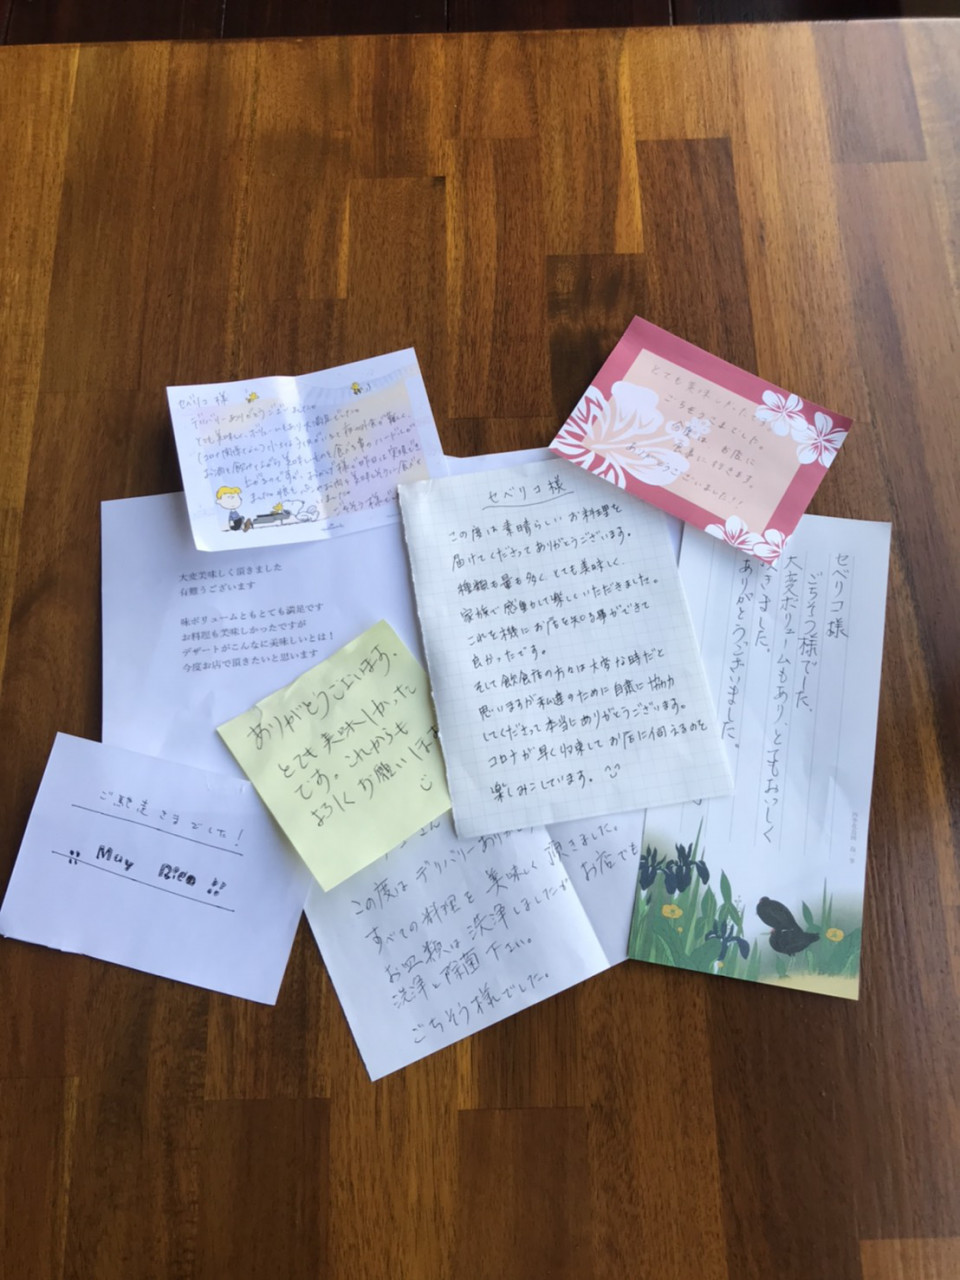 セベリコ 様
デリバリーありがとうございました。
とても美味しく、ボリュームもあり大満足でした。
とても美味しかったです。
ごちそうさまでした。
今度は お店に
食事に行きます。
ありがとうございました!!
大変美味しく頂きました
有難うございます
味ボリュームともとても満足です
お料理も美味しかったですが
デザートがこんなに美味しいとは!
今度お店で頂きたいと思います
セベリコ 様
この度は 素晴らしい お料理を
届けてくださって ありがとうございます。
種類も量も多く、とても美味しく、
家族で 感動して 楽しくいただきました。
これを機に お店を知る事ができて
良かったです。
そして 飲食店の方々は 大変な時だと
思いますが 私達のために 自粛に協力
してくださって 本当に ありがとうございます。
コロナが 早く収束して お店に伺えるのを
楽しみにしています。
セベリコ 様
ごちそう様でした。
大変ボリュームもあり、とてもおいしく
頂きました。
ありがとうございました。
ありがとうございます。
とても 美味しかった
です。これからも
よろしく お願い
ご馳走さまでした!
Muy Rico !!
この度は デリバリー
すべての料理を 美味しく 頂きました。
お皿類は 洗浄しましたが お店でも
洗浄し 除菌 下さい。
ごちそう様でした。